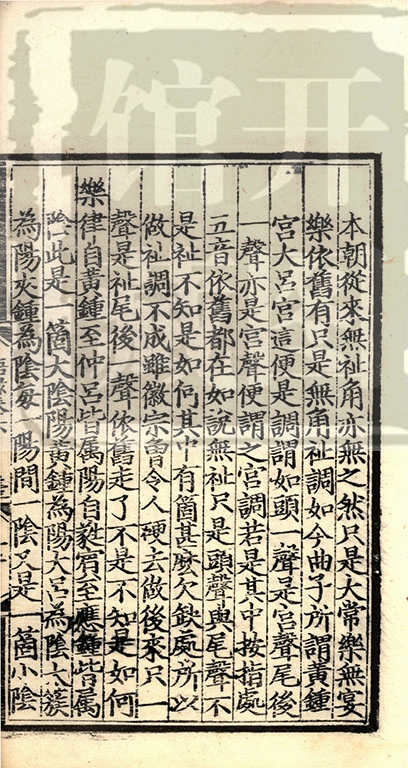 本朝從來無祉角亦無之然只是大常樂無宴
樂依舊有只是無角祉調如今曲子所謂黃鍾
宮大呂宮這便是調謂如頭一聲是宮聲尾後
一聲亦是宮聲便謂之宮調若是其中按指處
五音依舊都在如說無祉只是頭聲與尾聲不
是祉不知是如何其中有箇甚麼欠缺處所以
做祉調不成雖徽宗曾令人硬去做後來只一
聲是祉尾後一聲依舊走了不是不知是如何
樂律自黃鍾至仲呂皆屬陽自蕤賓至應鍾皆屬
陰此是一箇大陰陽黃鍾為陽大呂為陰太簇
為陽夾鍾為陰每一陽間一陰又是一箇小陰
开
馆